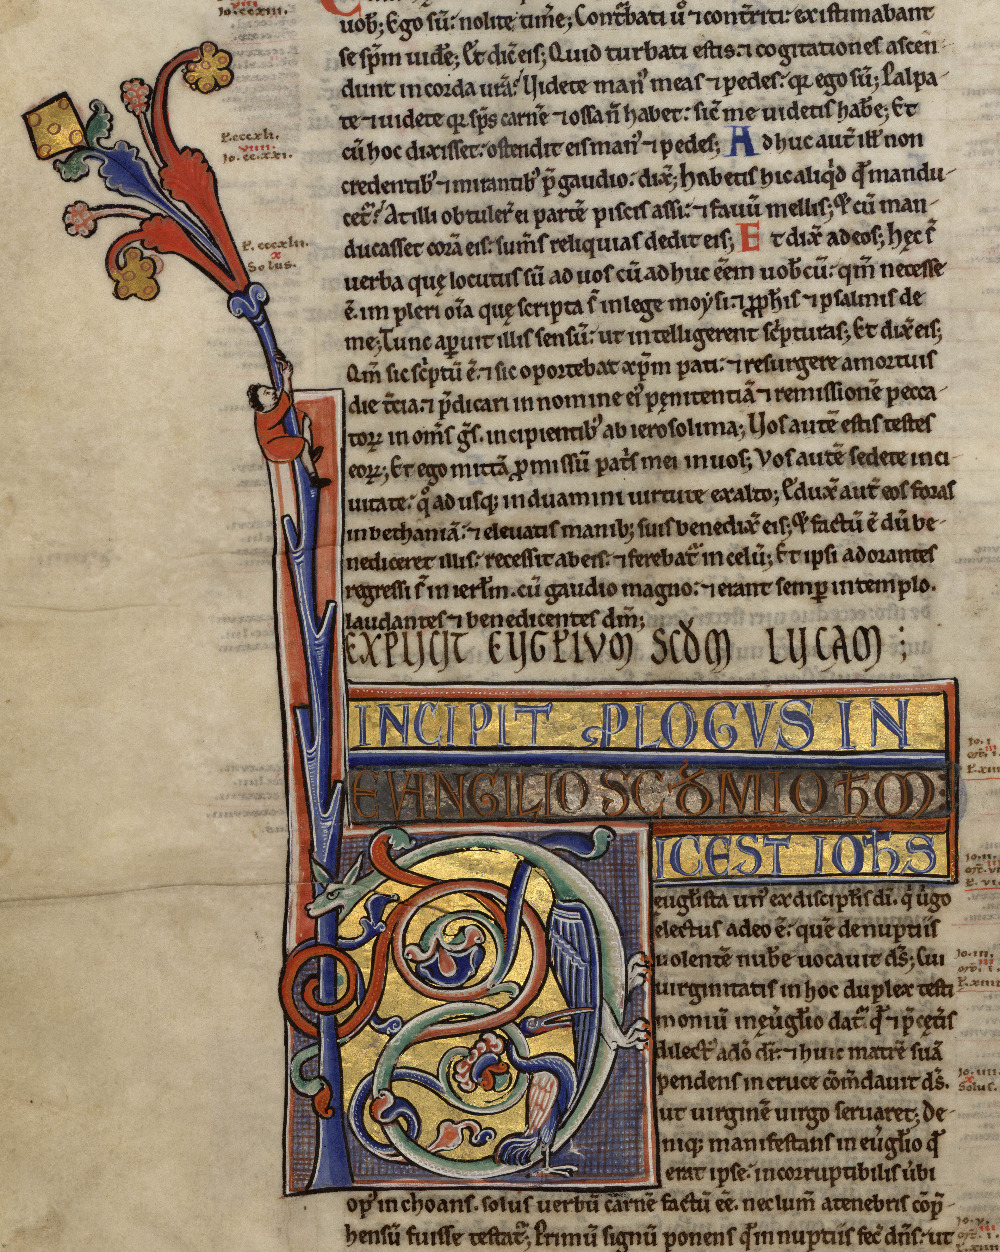 uob; Ego sū. nolite time; Contbati ů ⁊ contriti. existimabant
se spm uide; Et dic̄ eis; Quid turbati estis. ⁊ cogitationes ascen-
dunt in corda ura? Uidete man' meas ⁊ pedes. qr ego sū; Palpa-
te ⁊ uidete qr sps carnē ⁊ ossa n̄ habet. sic̄ me uidetis habe; Et
cū hoc dixisset. ostendit eis man' ⁊ pedes; Adhuc aut̄ ill' non
credentib' ⁊ mirantib' p̄ gaudio. dix̄; habetis hic aliqd qd mandu-
cet'? At illi obtuler' ei partē piscis assi. ⁊ fauū mellis; Et cū man-
ducasset corā eis. sum̄s reliquias dedit eis; Et dix̄ ad eos; hęc s̄
uerba quę locutus sū ad uos cū adhuc eēm uob cū. qm̄ necesse
ē impleri oīa quę scripta s̄ in lege moysi. ⁊ pphis ⁊ psalmis de
me; Tunc apuit illis sensū. ut intelligerent scpturas; Et dix̄ eis;
Qm̄ sic scptū ē. ⁊ sic oportebat xpm pati. ⁊ resurgere a mortuis
die tcia. ⁊ pdicari in nomine ei' pęnitentiā ⁊ remissionē pecca-
torꝝ in om̄s gs. incipientib' ab ierosolima; Uos autē estis testes
eorꝝ; Et ego mittā pmissū pat̄s mei in uos; Vos autē sedete in ci-
uitate. qo ad usq; induamini uirtute ex alto; Edux̄ aut̄ eos foras
in bethaniā. ⁊ eleuatis manib; suis benedix̄ eis; Et factū ē dū be-
nediceret illis. recessit ab eis. ⁊ ferebat' in celū; Et ipsi adorantes
regressi s̄ in ierl̄m. cū gaudio magno. ⁊ erant semp in templo.
laudantes ⁊ benedicentes dm̄;
EXPLICIT EUGELIVM SCDM LUCAM;
INCIPIT PLOGVS IN
EVANGILIO SCDM IOhM
HIC EST IOhS
euglista un' ex disciplis di. q̇ ůgo
electus a deo ē. quē de nuptiis
uolentē nube uocauit ds; Cui
uirginitatis in hoc duplex testi
moniū in ęuglio dat'. qd ⁊ p̄ cętis
dilect' a dō dr̄. ⁊ huic matrē suā
pendens in cruce cōm̄dauit ds.
ut uirginē uirgo seruaret; De-
niq; manifestans in euglio qd
erat ipse. incorruptibilis ůbi
op' inchoans. solus uerbū carnē factū eē. nec lum̄ a tenebris cōp-
hensū fuisse testat'; Primū signū ponens qd in nuptiis fec̄ dn̄s. ut